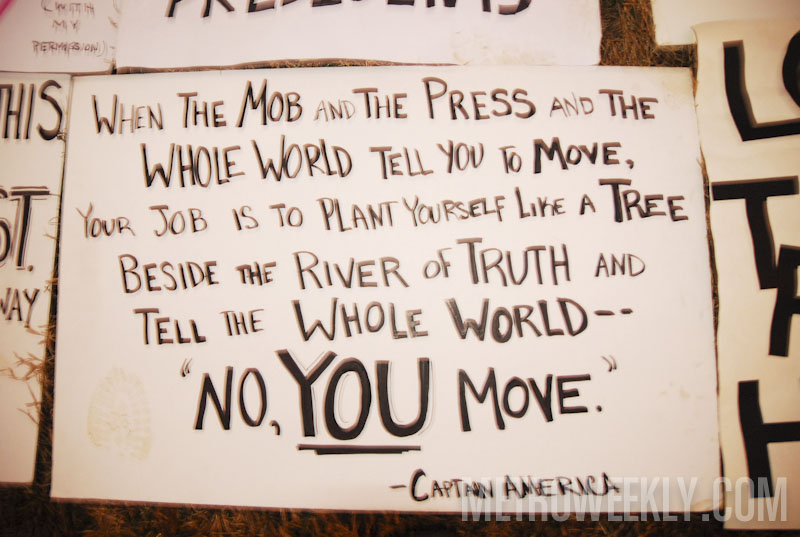 (WITH
MY
PERMISSION).
PRESIDENTS
THIS
ST.
WAY
WHEN THE MOB AND THE PRESS AND THE
WHOLE WORLD TELL YOU TO MOVE,
YOUR JOB IS TO PLANT YOURSELF LIKE A TREE
BESIDE THE RIVER OF TRUTH AND
TELL THE WHOLE WORLD--
"NO, YOU MOVE."
-CAPTAIN AMERICA
METROWEEKLY.COM